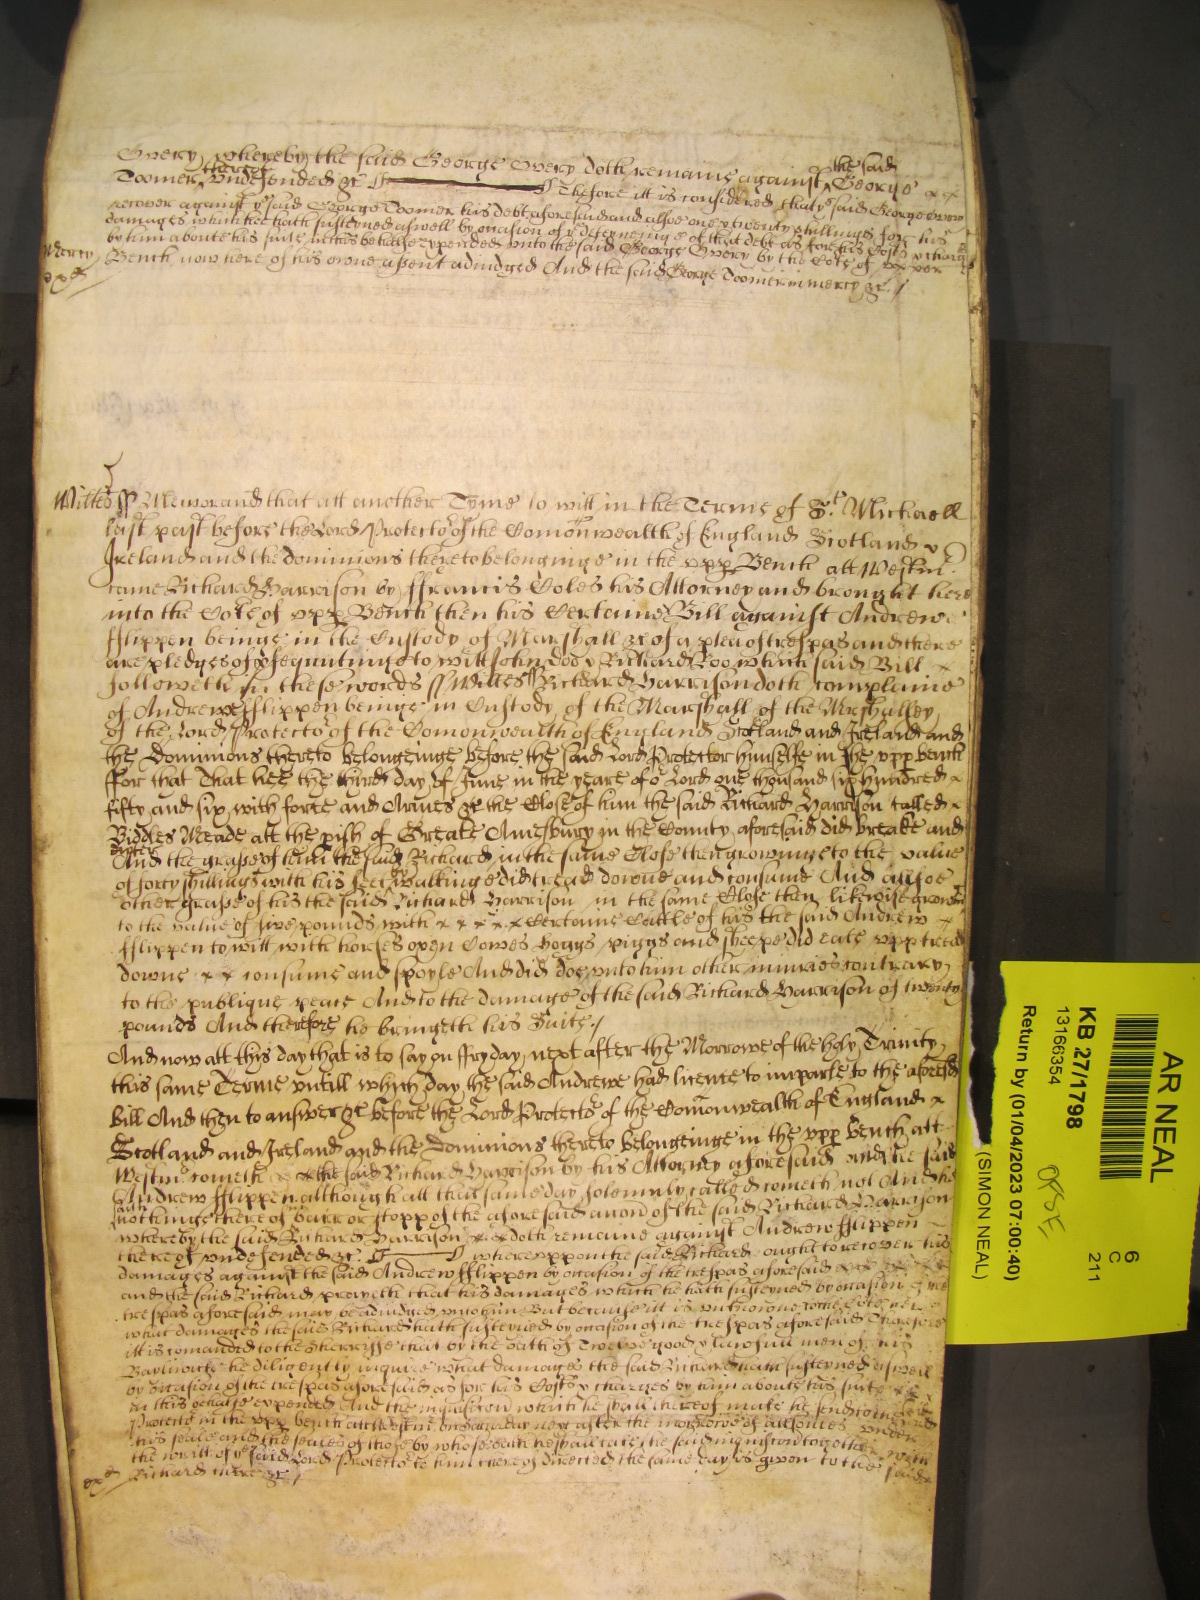 Overy whereby the said George Overy doth remaine against the said George
Toomer thereof undefended &c Therefore itt is considered that ye said George Overy
recover against ye said George Toomer his debt aforesaid and alsoe one & twenty shillings for his
damages which hee hath susteyned aswell by occasion of ye deteyneinge of that debt as for his Costs & charges
by him aboute his suite in this behalfe expended unto the said George Overy by the Cort of upper
Mercy Bench now here of his owne assent adiudged And the said George Toomer in mercy &c
Wiltes ss Memorand that att another Tyme to witt in the Terme of St. Michaell
last past before the Lord Protector of the Comonwealth of England Scotland &
Ireland and the dominions thereto belonginge in the upp Bench att Westm
came Richard Harrison by Francis Coles his Attorney and brought here
into the Cort of upp Bench then his Certaine Bill against Andrewe
fflippen beinge in the Custody of Marshall &c of a plea of trespas and there
are pledges of psequutinge to witt John Doe & Richard Roo which said Bill
followeth in these words ss Wiltes ss Richard Harrison doth complaine
of Andrewe fflippen beinge in Custody of the Marshall of the Mrshalley
of the Lord Protector of the Comonwealth of England Scotland and Ireland and
the Dominions thereto belongeinge before the said Lord Protector himselfe in the upp bench
ffor that That hee the third day of June in the yeare of or Lord one thousand six hundred
fifty and six with force and Armes &c the Close of him the said Richard Harrison called
Biddles Meade att the pish of Greate Amesbury in the County aforesaid did breake and
enter And the grasse of him the said Richard in the same Close then growinge to the value
of forty shillings with his feet by walkinge did tread downe and consume And alsoe
other grasse of his the said Richard Harrison in the same Close then likewise growinge
to the value of five pounds with x x x x Certaine Cattle of his the said Andrew
fflippen to witt with horses oxen Cowes hoggs piggs and sheepe did eate upp tread
downe x x consume and spoyle And did doe unto him other iniuries contrary
to the publique peace And to the damage of the said Richard Harrison of twenty
pounds And therefore he bringeth his Suite
And now att this day that is to say on ffryday next after the Morrowe of the holy Trinity
this same Terme untill which day the said Andrewe had licence to imparle to the aforesd
bill And then to answer &c before the Lord Protector of the Comonwealth of England x
Scotland and Ireland and the Dominions thereto belongeinge in the upp bench att
Westm cometh x x the said Richard Harrison by his Attorney aforesaid and the said
Andrew fflippen although att that same day solemnly called cometh not And he
saith nothinge thereof in barr or stopp of the aforesaid accon of the said Richard Harrison
whereby the said Richard Harrison x x doth remaine against Andrew fflippen
thereof undefended &c whereuppon the said Richard ought to recover his
damages against the said Andrew fflippen by occasion of the trespas aforesaid
and the said Richard prayeth that his damages which he hath susteyned by occasion of the
trespas aforesaid may be adiudged unto him But because itt is unknowne to the Cort here
what damages the said Richard hath susteyned by occasion of the trespas aforesaid Therefore
itt is comanded to the Sherriffe that by the oath of Twelve good & lawfull men of his
Baylwick he diligently inquire what damages the said Richard hath susteyned aswell
by occasion of the trespas aforesaid as for his Costs & charges by him aboute his suite
in this behalfe expended And the inquisicon which he shall thereof make he send to the Lord
Protector in the upp bench att Westm on Saturday next after the morrowe of all soules under
his seale and the seales of those by whose oath he shall take the said inquisicon together with
the writt of ye said Lord Protector to him thereof directed the same day is given to the said
Richard there &c
AR NEAL
KB 27/1798
13166354
Return by (01/04/2023 07:00:40)
(SIMON NEAL)
6
C
211